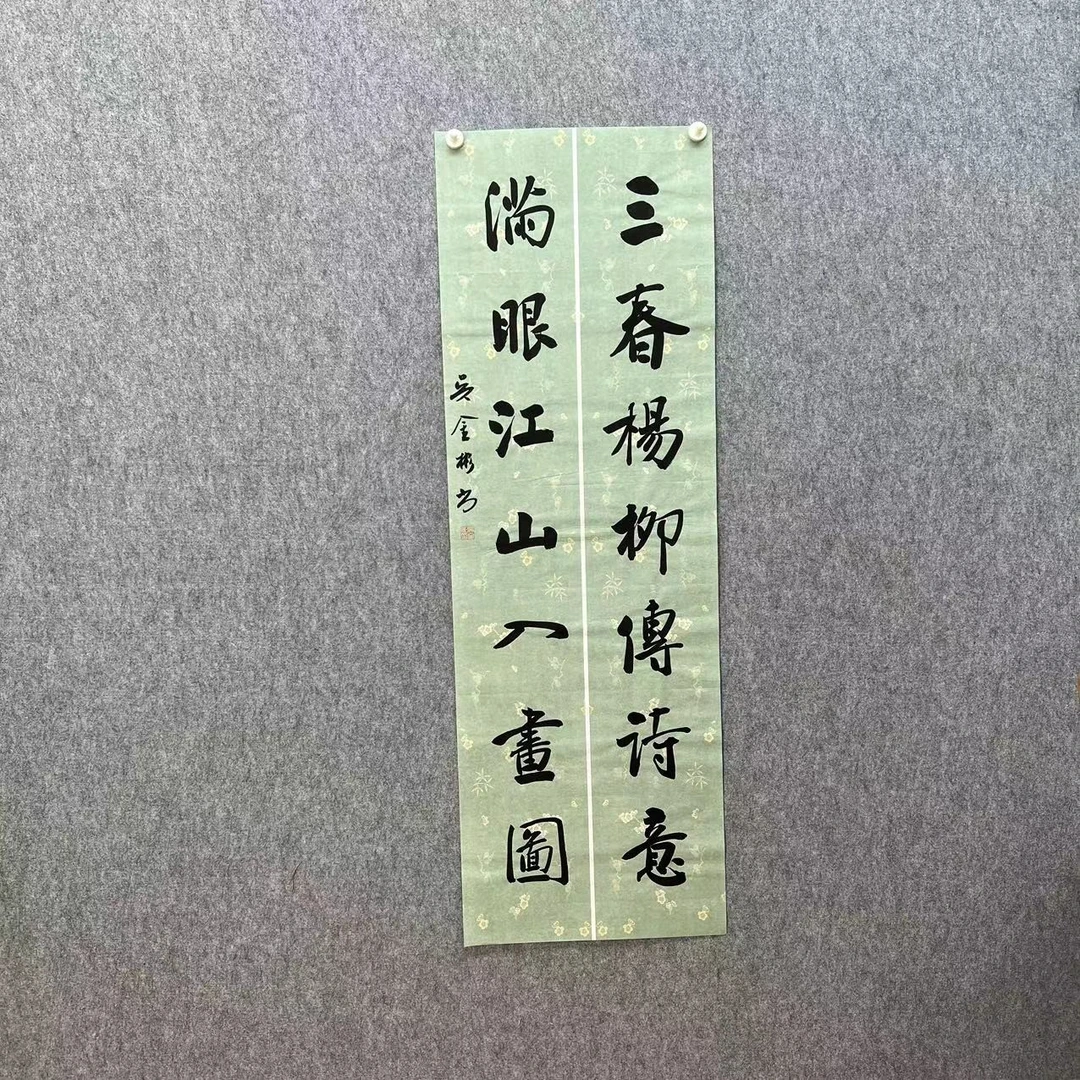 三春楊柳傳詩意
滿眼江山入畫圖
吴金彬书